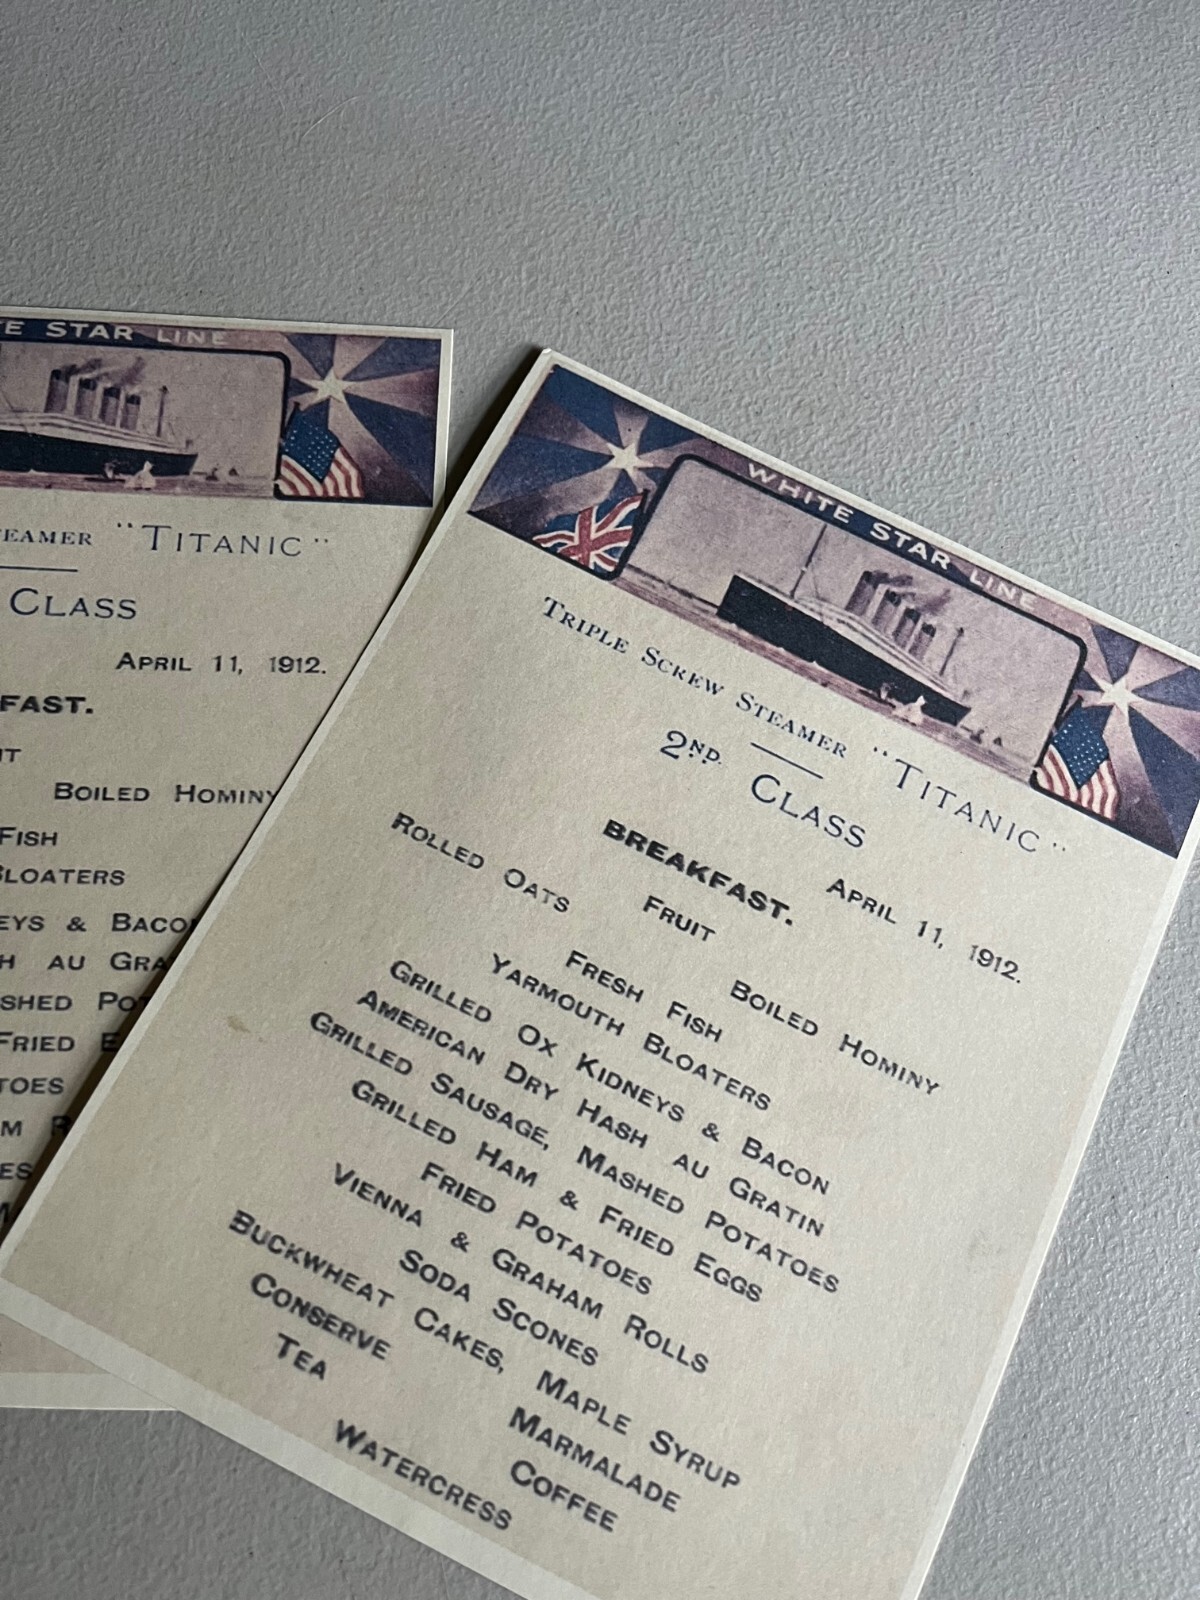 E STAR LINE
"TITANIC"
CLASS
APRIL 11, 1912.
BOILED HOMINY
FISH
BLOATERS
& BACON
AU
FRIED
WHITE STAR LINE
TRIPLE SCREW STEAMER "TITANIC"
2ND. CLASS
APRIL 11, 1912.
BREAKFAST.
FRUIT
ROLLED OATS BOILED HOMINY
FRESH FISH
YARMOUTH BLOATERS
GRILLED OX KIDNEYS & BACON
AMERICAN DRY HASH AU GRATIN
GRILLED SAUSAGE, MASHED POTATOES
GRILLED HAM & FRIED EGGS
FRIED POTATOES
VIENNA & GRAHAM ROLLS
SODA SCONES
BUCKWHEAT CAKES, MAPLE SYRUP
CONSERVE MARMALADE
TEA COFFEE
WATERCRESS